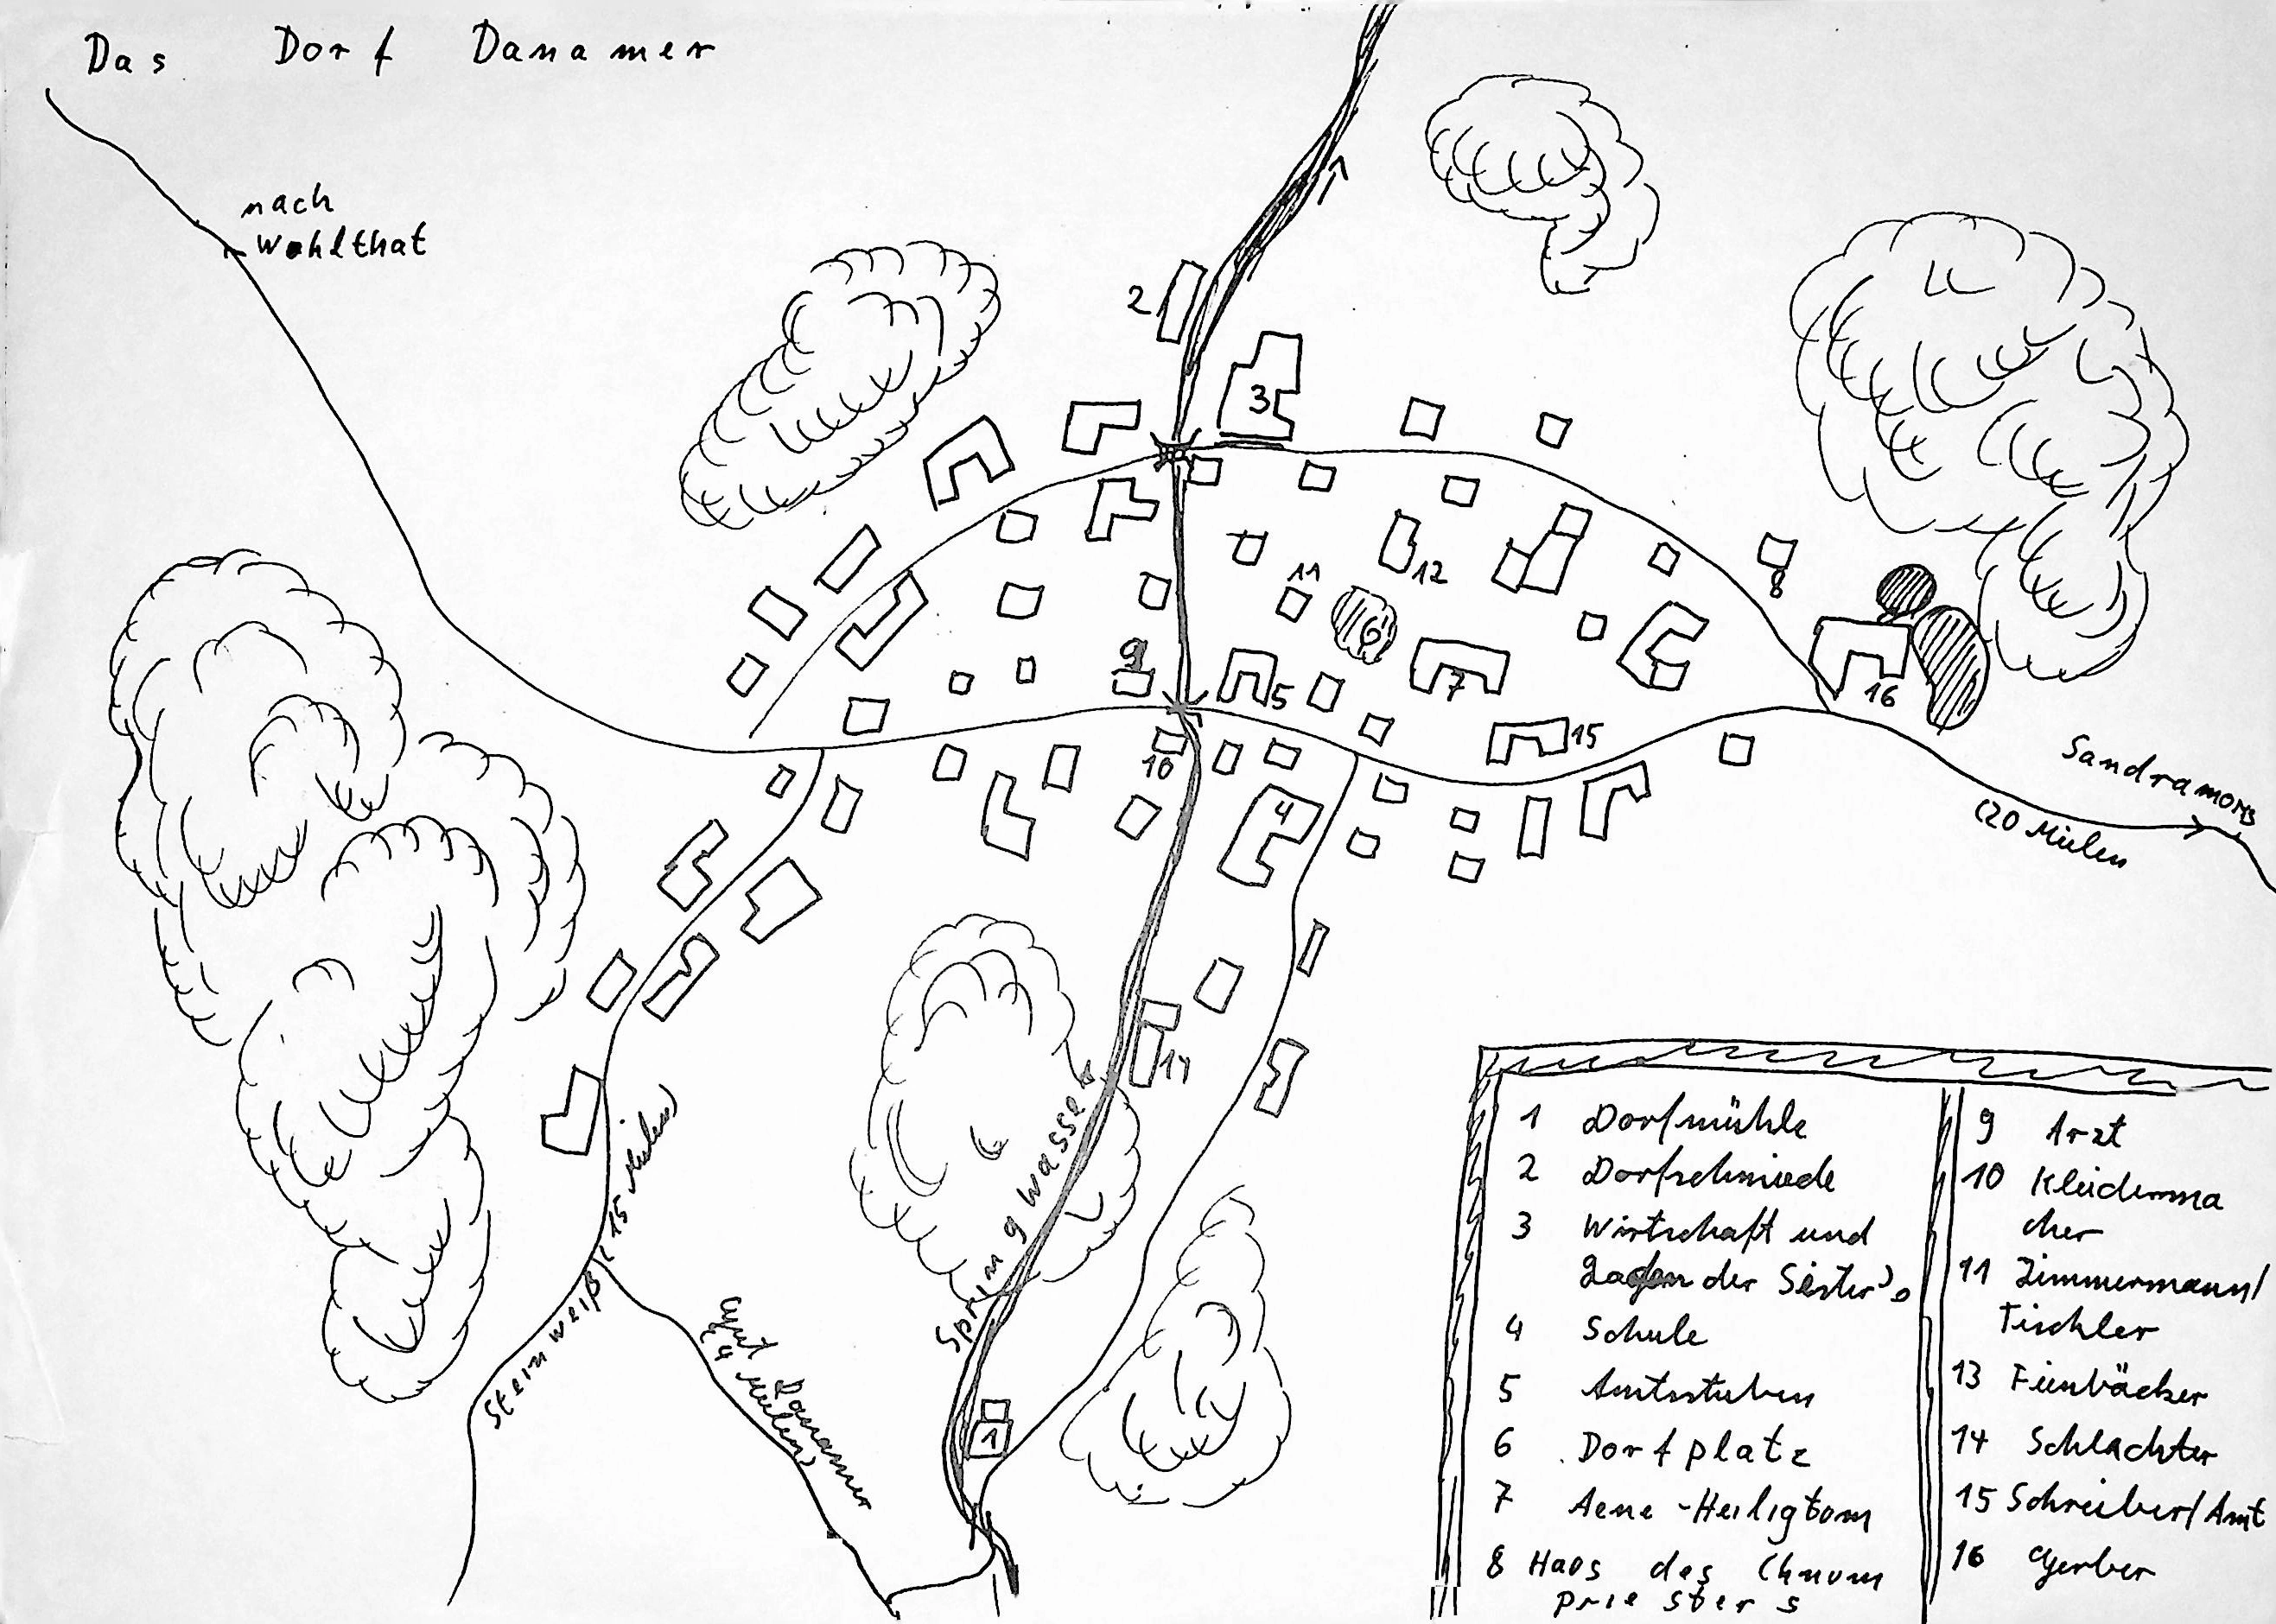 Das Dorf Danamer
nach
Wohlthat
2
3
11
12
6
8
9
5
7
16
15
10
4
Sandramoris
(20 Meilen
14
Springwasser
Steinweiß (15 Meilen)
Gut Danamer
(4 Meilen)
1
1 Dorfmühle
2 Dorfschmiede
3 Wirtschaft und
Laden der Sister's
4 Schule
5 Amtsstuben
6 Dorfplatz
7 Aene-Heiligtom
8 Haos des Chnom
priesters
9 Arzt
10 Kleiderma
cher
11 Zimmermann/
Tischler
13 Feinbäcker
14 Schlachter
15 Schreiber/Amt
16 Gerber